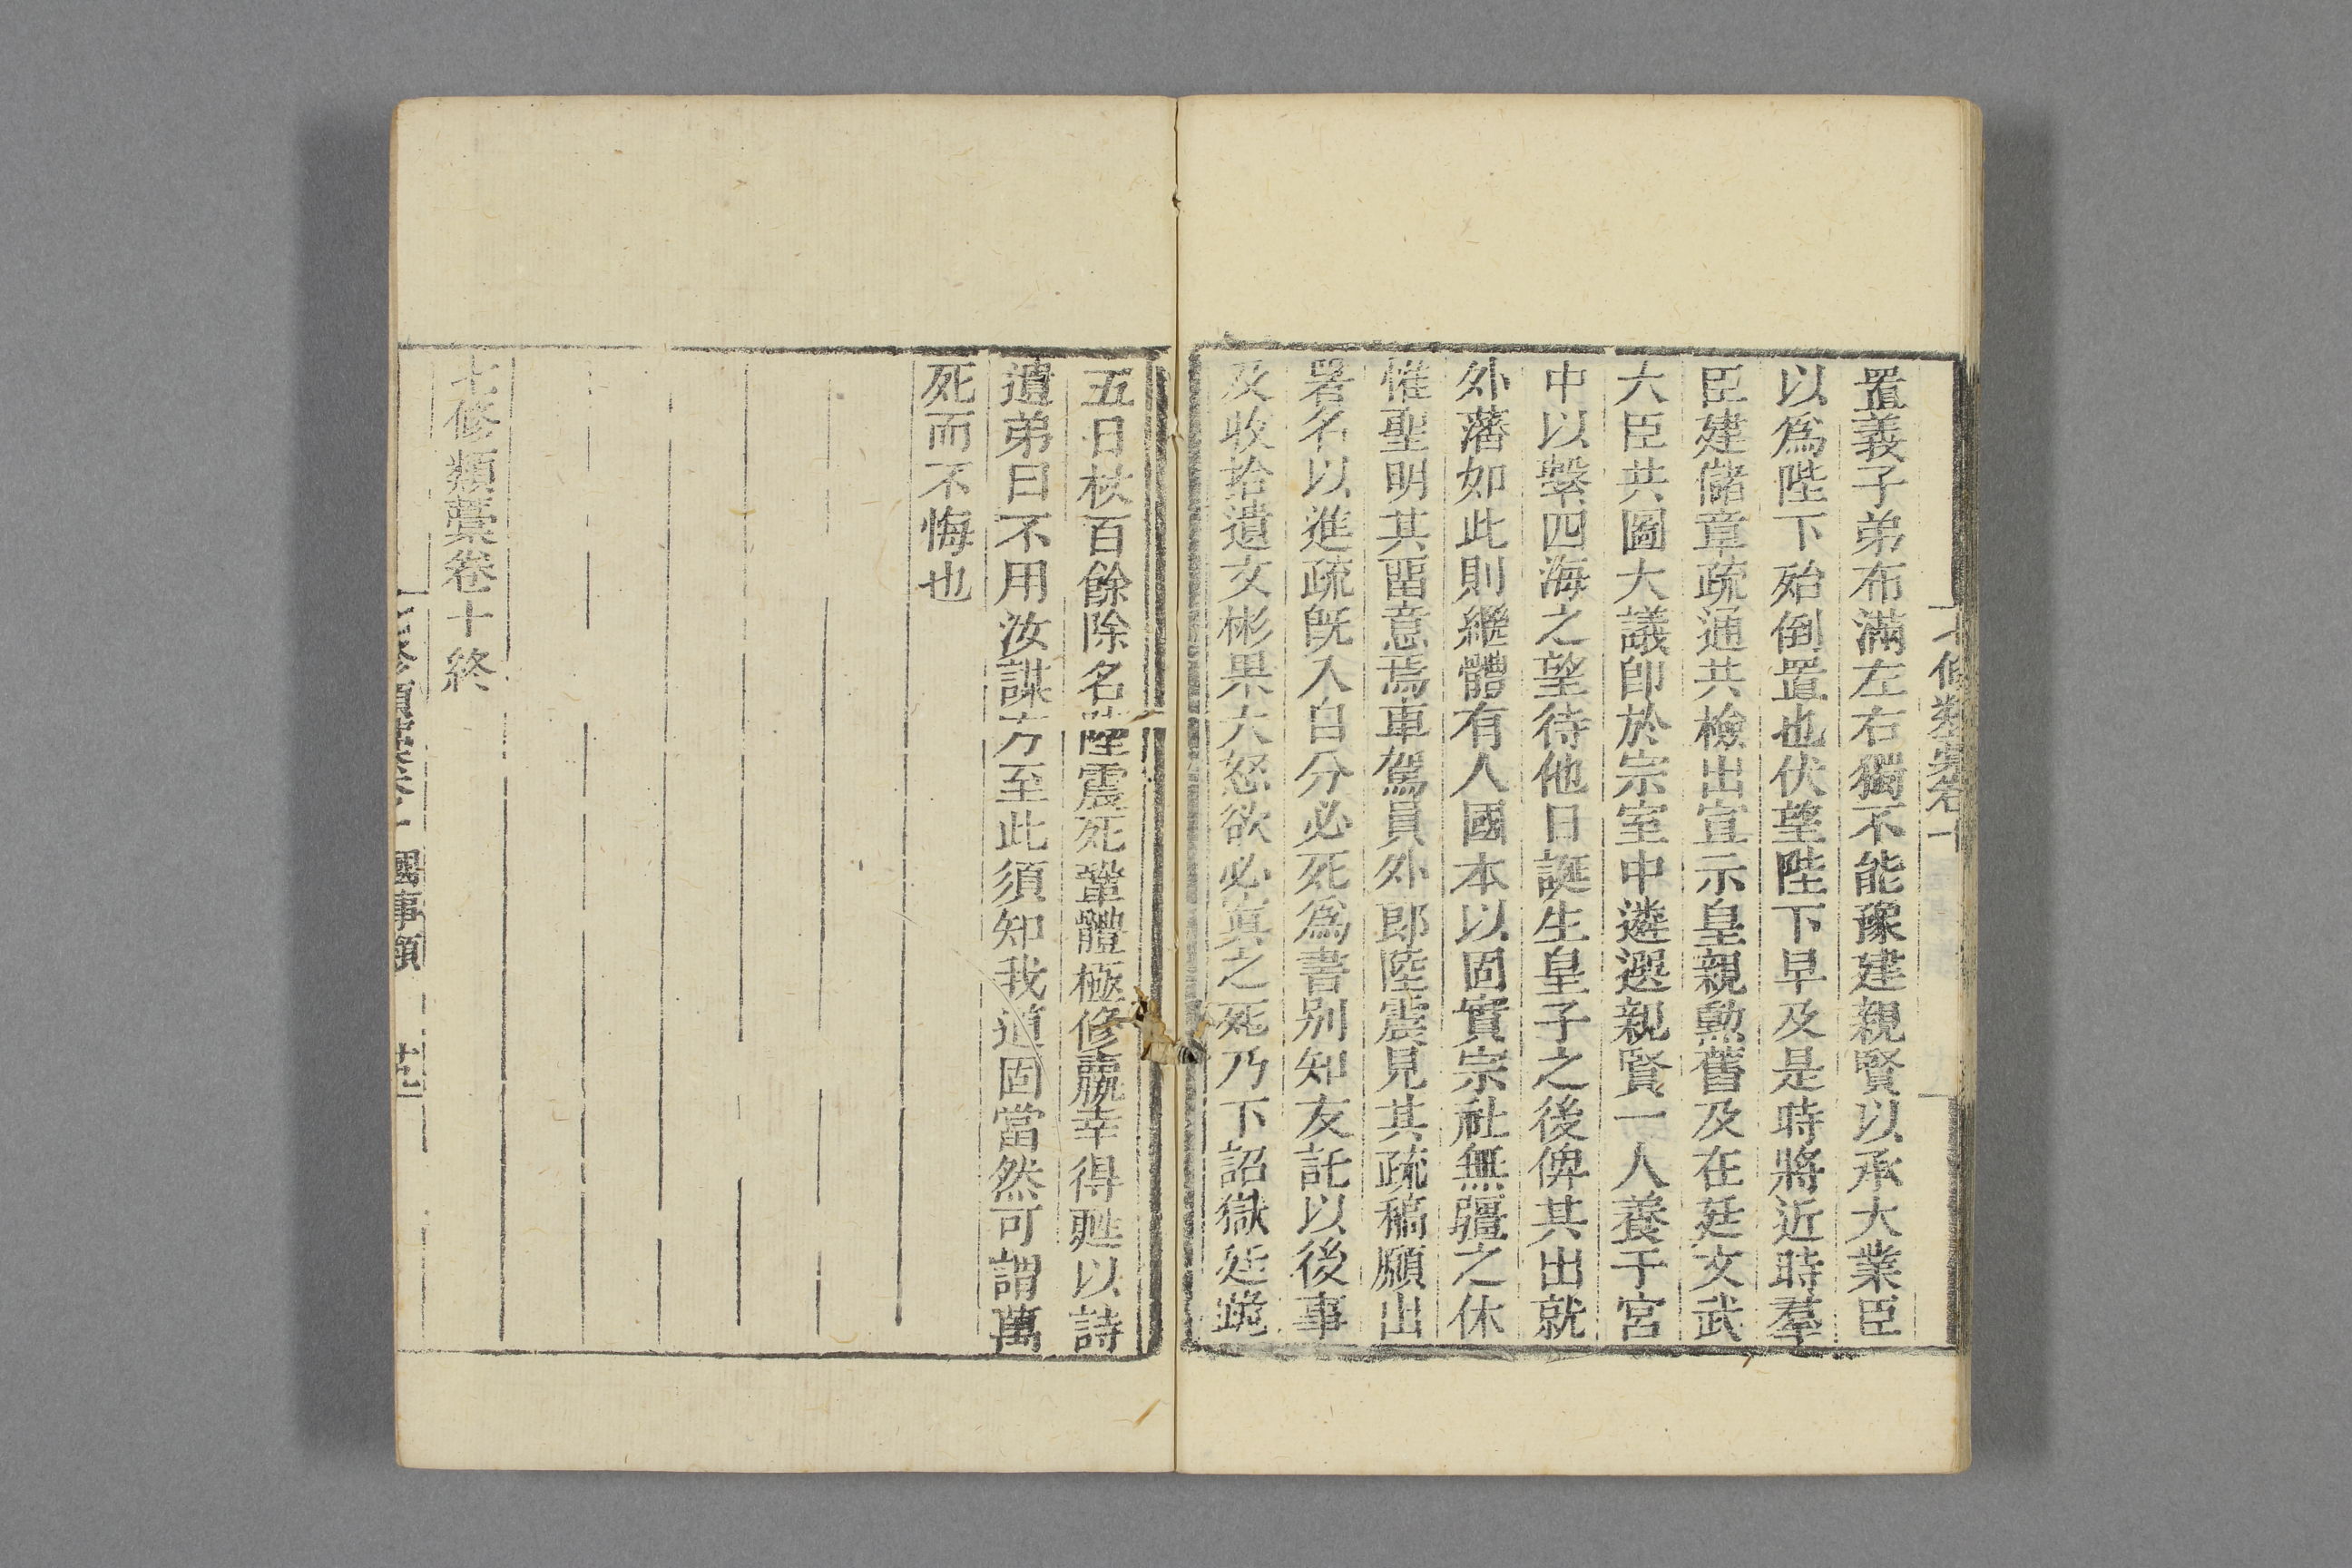 置義子弟布滿左右獨不能豫建親賢以承大業臣
以爲陛下殆倒置也伏望陛下早及是時將近時羣
臣建儲章疏通共檢出宣示皇親勲舊及在廷文武
大臣共圖大議卽於宗室中遴選親賢一人養于宮
中以繫四海之望待他日誕生皇子之後俾其出就
外藩如此則繼體有人國本以固實宗社無疆之休
惟聖明其畱意焉車駕員外郎陸震見其疏稿願出
署名以進疏旣入自分必死爲書别知友託以後事
及收拾遺文彬果大怒欲必寘之死乃下詔獄廷跪
五日杖百餘除名陸震死鞏體極修羸幸得甦以詩
遺弟曰不用汝謀方至此須知我道固當然可謂萬
死而不悔也
七修類藁卷十終
國事類